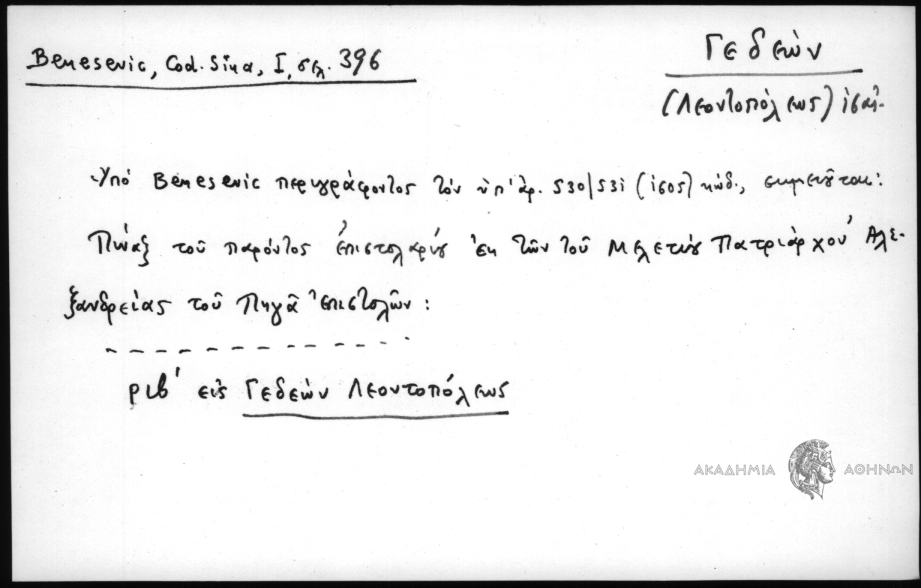 Benesevic, Cod. Sina, I, σελ. 396
Γεδεών
(Λεοντοπόλεως)
Ὑπό Benesevic περιγράφοντος τόν ὑπ' ἀρ. 530/531 κώδ., σημειοῦται:
Πίναξ τοῦ παρόντος ἐπιστολαρίου ἐκ τῶν τοῦ Μελετίου Πατριάρχου Ἀλε-
ξανδρείας τοῦ Πηγᾶ ἐπιστολῶν:
ριβ' εἰς Γεδεών Λεοντοπόλεως
ΑΚΑΔΗΜΙΑ ΑΘΗΝΩΝ